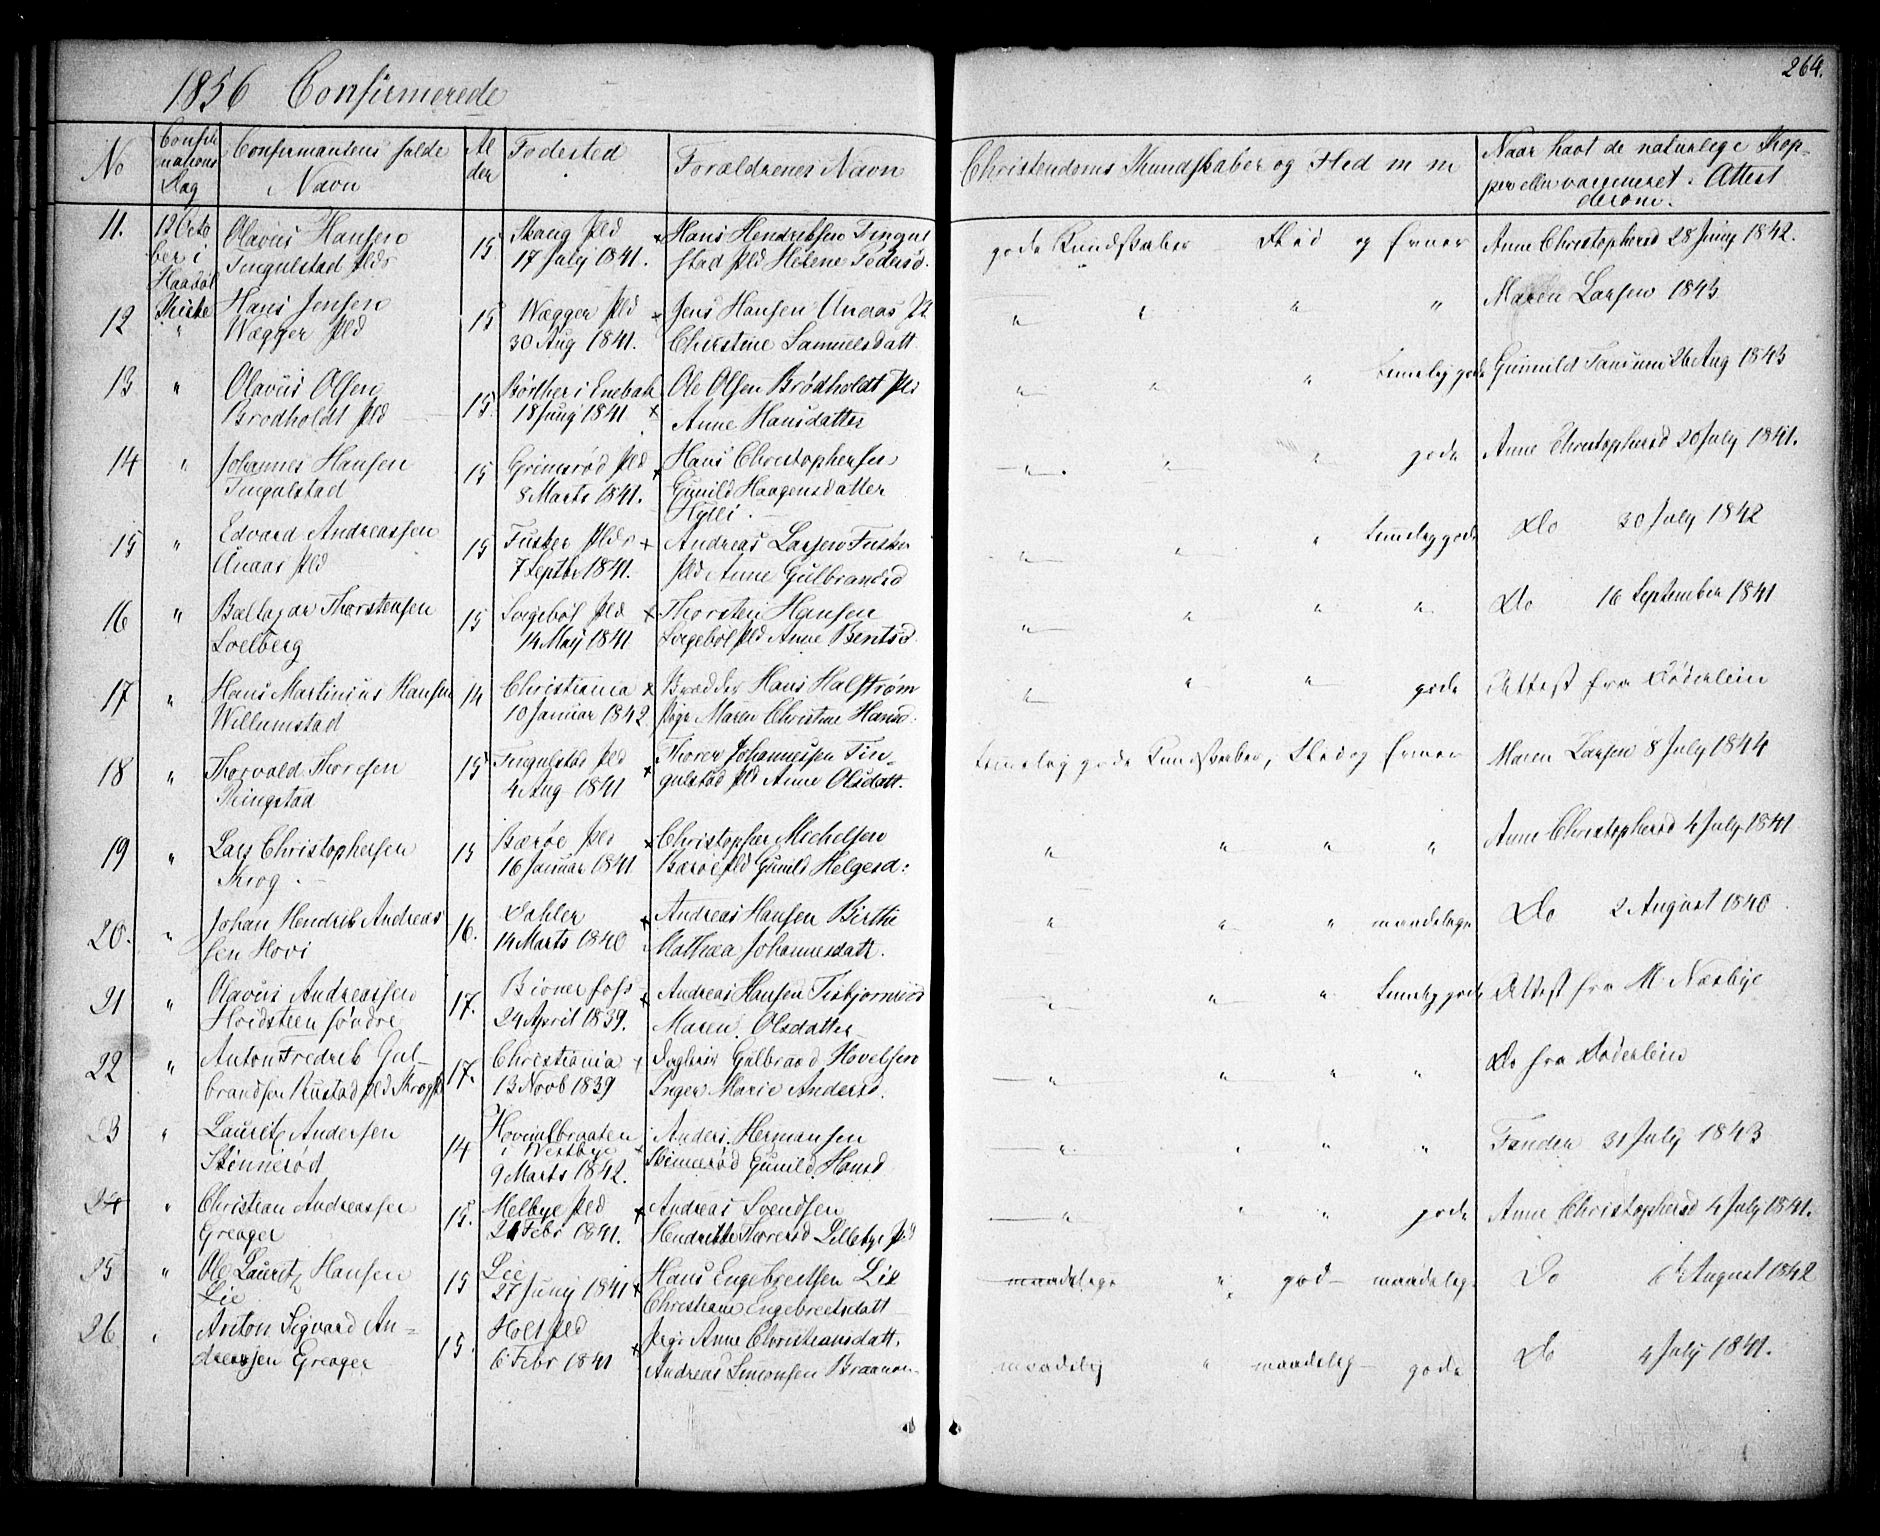 264.
1856 Confirmerede
No
Confir
mations
Dag
Confirmantens fulde
Navn
Al
der
Fødested
Forældrenes Navn
Christendoms Kundskaber og Flid m m
Naar havt de naturlige Kop-
per eller vaccineret. Attest
derom.
11.
12 Octo
ber i
Haabøl
Kirke
Olavus Hansen
Tingulstad Pld
15
Skaug Pld
17 July 1841.
Hans Hendriksen Tingul
stad Pld Helene Pedersd.
gode Kundskaber Flid og Evner
Anne Christophersd 28 Juny 1842.
12 "
Hans Jensen
Wægger Pld
15
Wægger Pld
30 Aug 1841.
Jens Hansen Unaas Pl
Christine Samuelsdatt
" " " "
Maren Larsen 1843
13 "
Olavus Olsen
Brodholdt Pld
15.
i Enebak
18 Juny 1841.
Ole Olsen Brødholdt Pld
Anne Hansdatter
" " " temelig gode
Gunnild 26 Aug 1843
14 "
Johannes Hansen
Tingulstad
15
Grimsrød Pld
8 Marts 1841.
Hans Christophersen
Gunild Haagensdatter
Hylli
" " " gode
Anne Christophersd 20 July 1841.
15 "
Edvard Andreassen
Unaas Pld
15
Fusker Pld
7 Septbr 1841.
Andreas Larsen Fusker
Pld Anne Gulbrandsd
" " " temelig gode
Do 30 July 1842
16 "
Baltazar Thorstensen
Solberg
15
Sorgebøl Pld
14 May 1841
Thorsten Hansen
Sorgebøl Pld Anne Bentsd
" " " "
Do 16 September 1841
17 "
Hans Martinius Hansen
Willumstad
14
Christiania
10 Januar 1842
Hans Halstrøm
Pige Maren Christine Hansd:
" " " gode
Attest fra Döderlein
18 "
Thorvald Thoresen
Ringstad
15
Tingulstad Pld
4 Aug 1841
Thorer Johannessen Tin-
gulstad Pld Anne Olsdatt.
temelig gode Kundskaber, Flid og Evner
Maren Larsen 8 July 1844
19 "
Lars Christophersen
Krog
15
Barøe Pld
16 Januar 1841
Christopher Michelsen
Barøe Pld Gunild Helgesd:
" " " "
Anne Christophersd 4 July 1841
20. "
Johan Hendrik Andreas
sen Hovi
16.
Dahler
14 Marts 1840
Andreas Hansen Birthe
Mathea Johannesdatt.
" " " maadelige
Do 2 August 1840
21 "
Olavus Andreassen
Hvidsteen søndre
17.
24 April 1839.
Andreas Hansen
Maren Olsdatter
" " " temelig gode
Attest fra M. Næsbye
22 "
Anton Fredrik Gul-
brandsen Rustad Pld
17.
Christiania
13 Novb 1839
Gulbrand Hovelsen
Inger Marie Andersd.
" " " "
Do fra Döderlein
23 "
Lauritz Andersen
Skinnerød
14
i Westbye
9 Marts 1842.
Anders Hermansen
Gunild Hansd
" " " "
31 July 1843
24 "
Christian Andreassen
Greager
15.
Melbye Pld
21 Febr 1841.
Andreas Svendsen
Hendrikke Thoresd Lillebye Pld
" " " gode
Anne Christophersd 4 July 1841.
25 "
Ole Lauritz Hansen
Lie
15
Lie
27 Juny 1841
Hans Engebretsen Lie
Christiane Engebretsdatt
maadelige " god maadelig
Do 6 August 1842
26
Anton Sigvard An-
dreasen Greager
15.
Holt Pld
6 Febr 1841
Pige Anne Christiansdatt,
Andreas Simonsen Braanan
maadelig " maadelig gode
Do 4 July 1841.